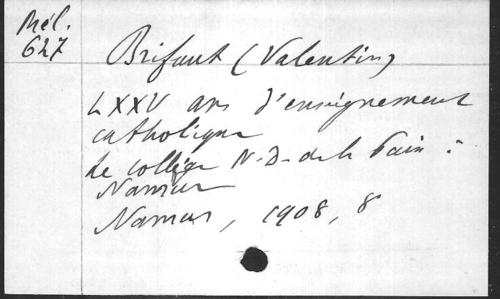 Mél.
627
Brifaut (Valentin)
LXXV ans d'enseignement
catholique
Le collège N.-D. de la Paix à
Namur
Namur, 1908, 8